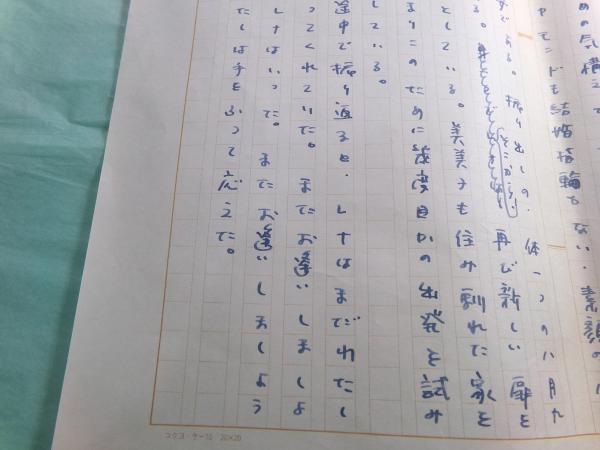 めの気構えて、
ヤモンドも結婚指輪もない、素顔の
ずである。振り出しの、体一つの八月九
る。再び新しい扉を
としている。美美子も住み馴れた家を
まりこのために幾度目かの出発を試み
している。
途中で振り返ると、レナはまだわたし
ってくれていた。またお逢いしましょ
レナはいった。またお逢いしましょう
たしは手をふって応えた。
コクヨ ケ-10 20×20